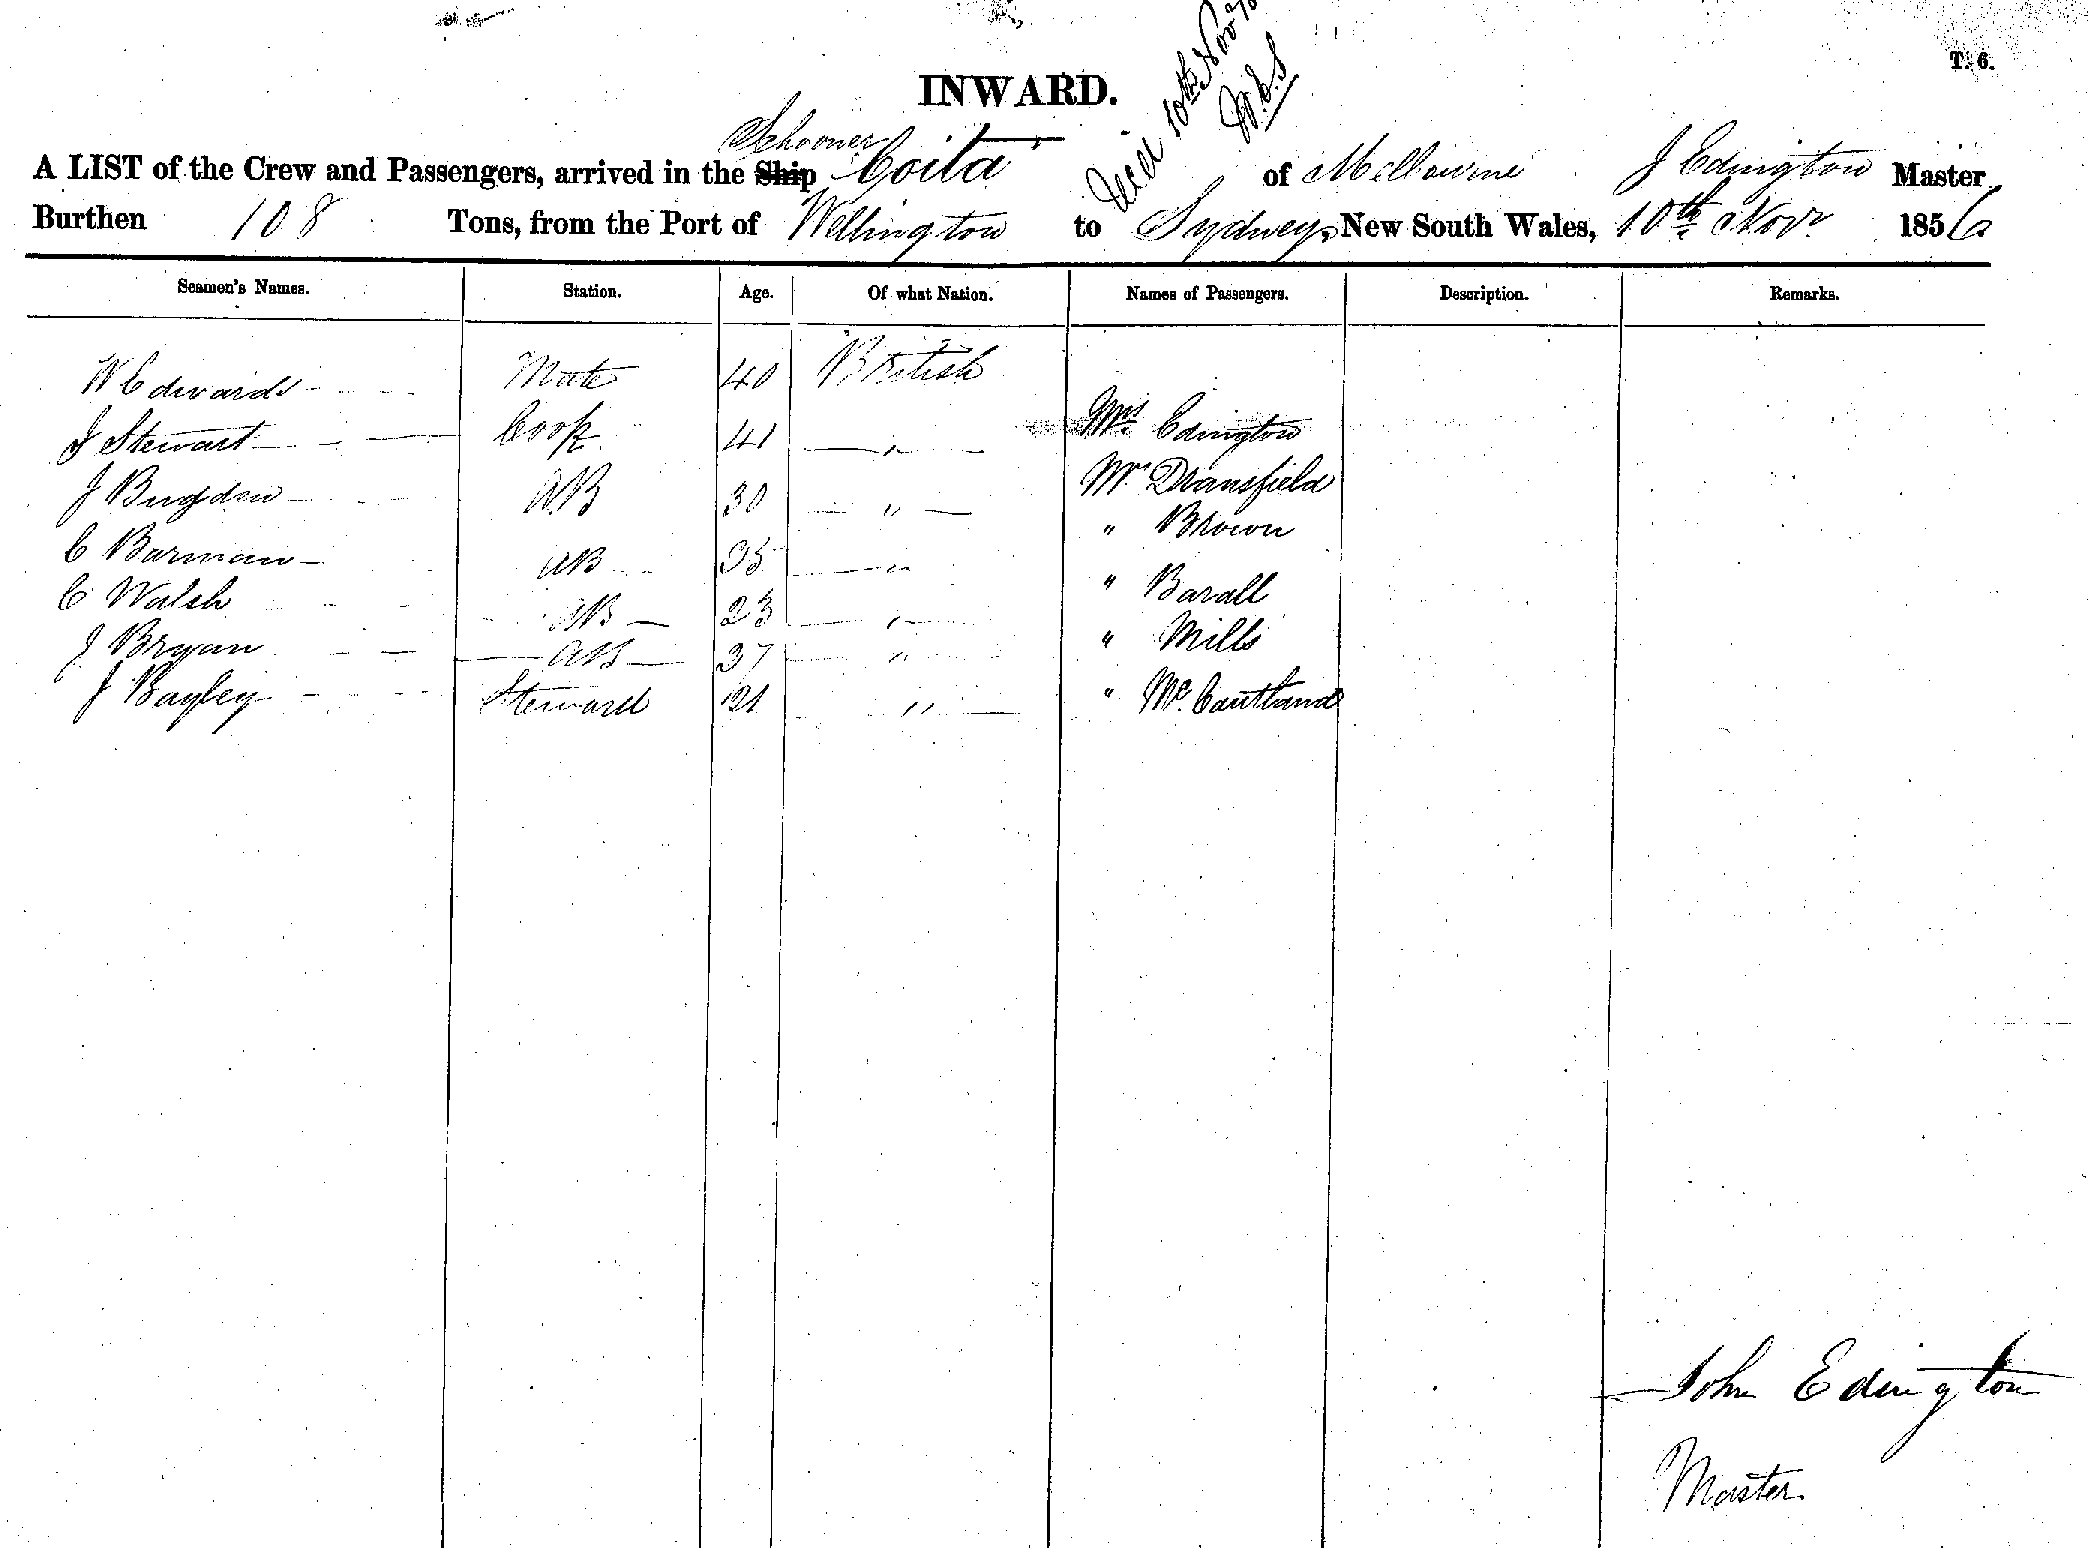 T. 6.
INWARD.
Recd 10th Novr
Schooner
A LIST of the Crew and Passengers, arrived in the Ship Coita of Melbourne J Edington Master
Burthen 108 Tons, from the Port of Wellington to Sydney, New South Wales, 10th Novr 1856
Seamen's Names. Station. Age. Of what Nation. Names of Passengers. Description. Remarks.
W Edwards Mate 40 British
J Stewart Cook 41 " Mrs Edington
J Bugden AB 30 " Mr Dransfield
" Brown
C Barman AB 35 "
C Walsh AB 23 " " Barall
J Bryan AB 37 " " Mills
J Bayley Steward 21 " " McCautland
John Edington
Master